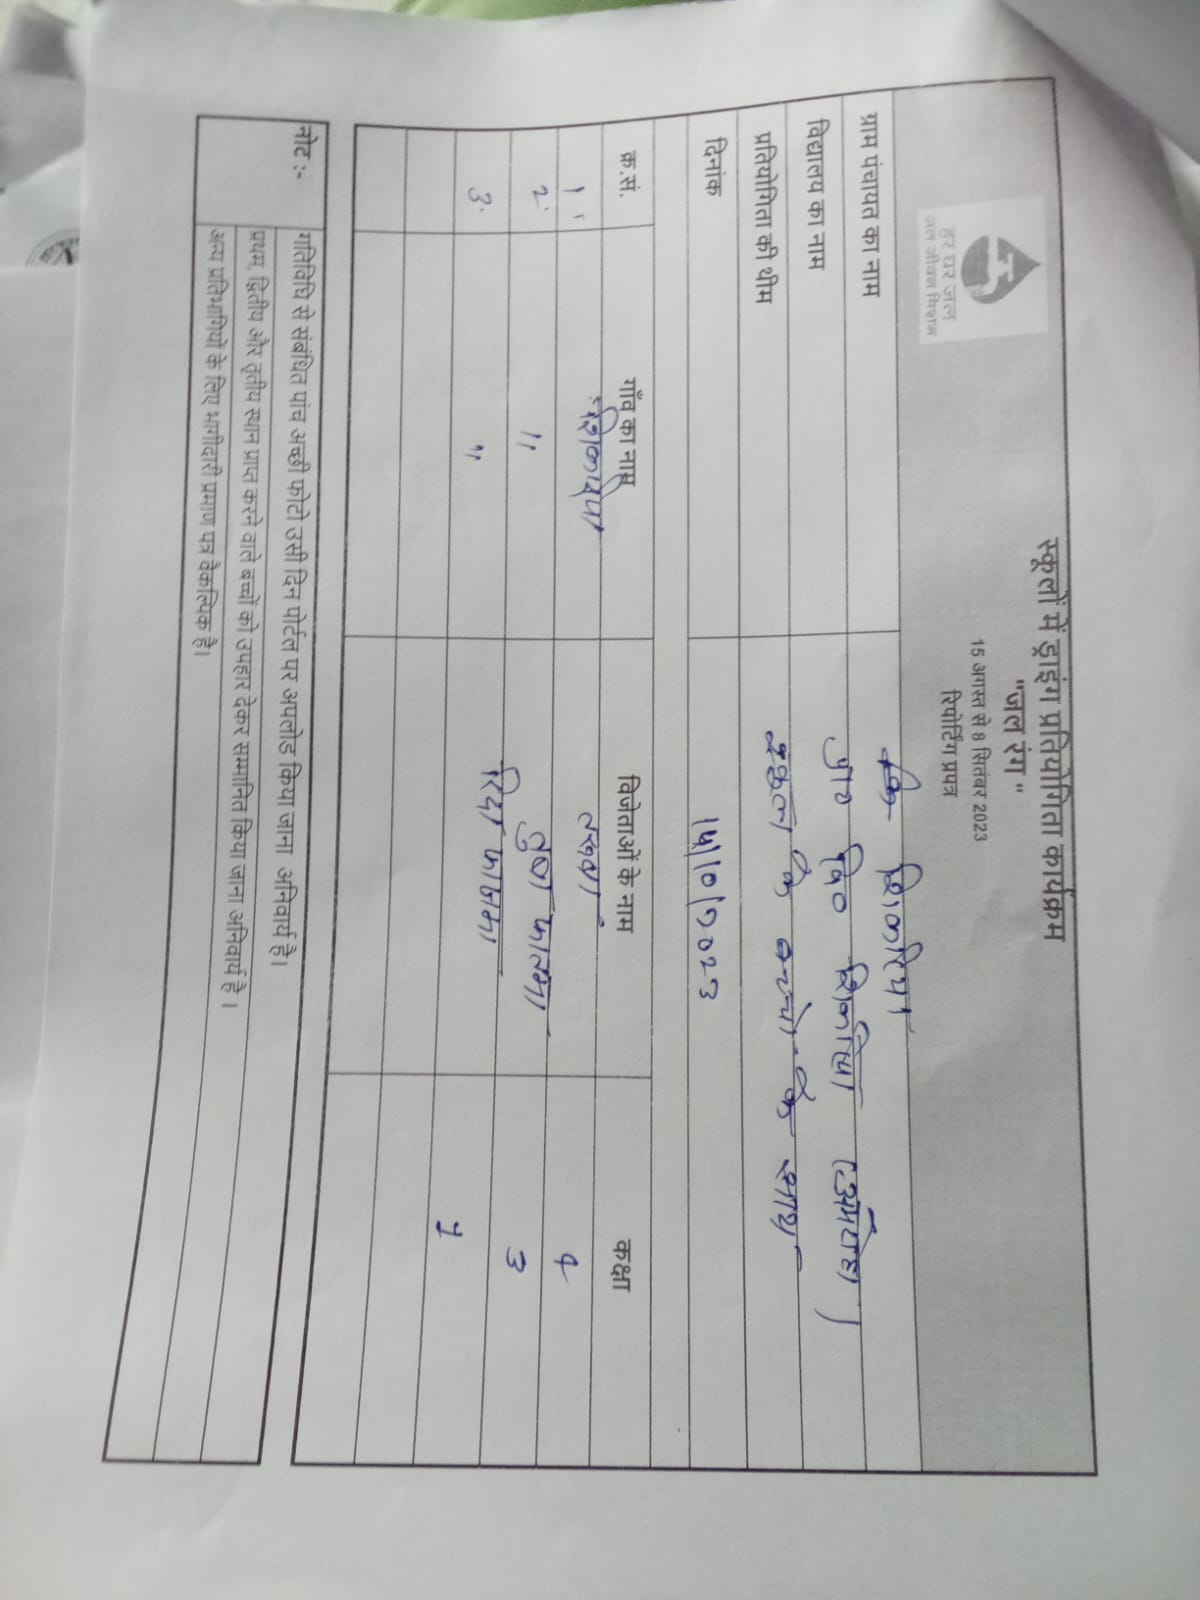 हर घर जल
जल जीवन मिशन
स्कूलों में ड्राइंग प्रतियोगिता कार्यक्रम
"जल रंग"
15 अगस्त से 8 सितंबर 2023
रिपोर्टिंग प्रपत्र
ग्राम पंचायत का नाम
विद्यालय का नाम प्रा० वि०
प्रतियोगिता की थीम स्कूल के बच्चो के साथ
दिनांक
क्र.सं. गाँव का नाम विजेताओं के नाम कक्षा
1. 4
2. " फातमा 3
3. " रिदा फातमा 1
नोट :- गतिविधि से संबंधित पांच अच्छी फोटो उसी दिन पोर्टल पर अपलोड किया जाना अनिवार्य है।
प्रथम, द्वितीय और तृतीय स्थान प्राप्त करने वाले बच्चों को उपहार देकर सम्मानित किया जाना अनिवार्य है।
अन्य प्रतिभागियों के लिए भागीदारी प्रमाण पत्र वैकल्पिक है।